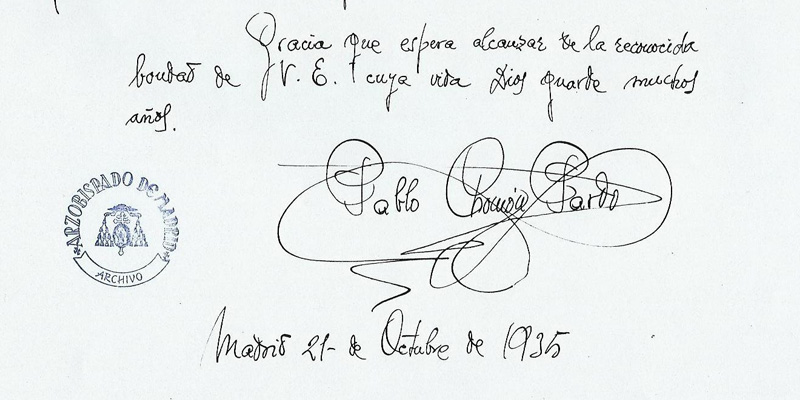 Gracia que espera alcanzar de la reconocida
bondad de V. E. cuya vida Dios guarde muchos
años.
Pablo Chomón Pardo
ARZOBISPADO DE MADRID
ARCHIVO
Madrid 21- de Octubre de 1935